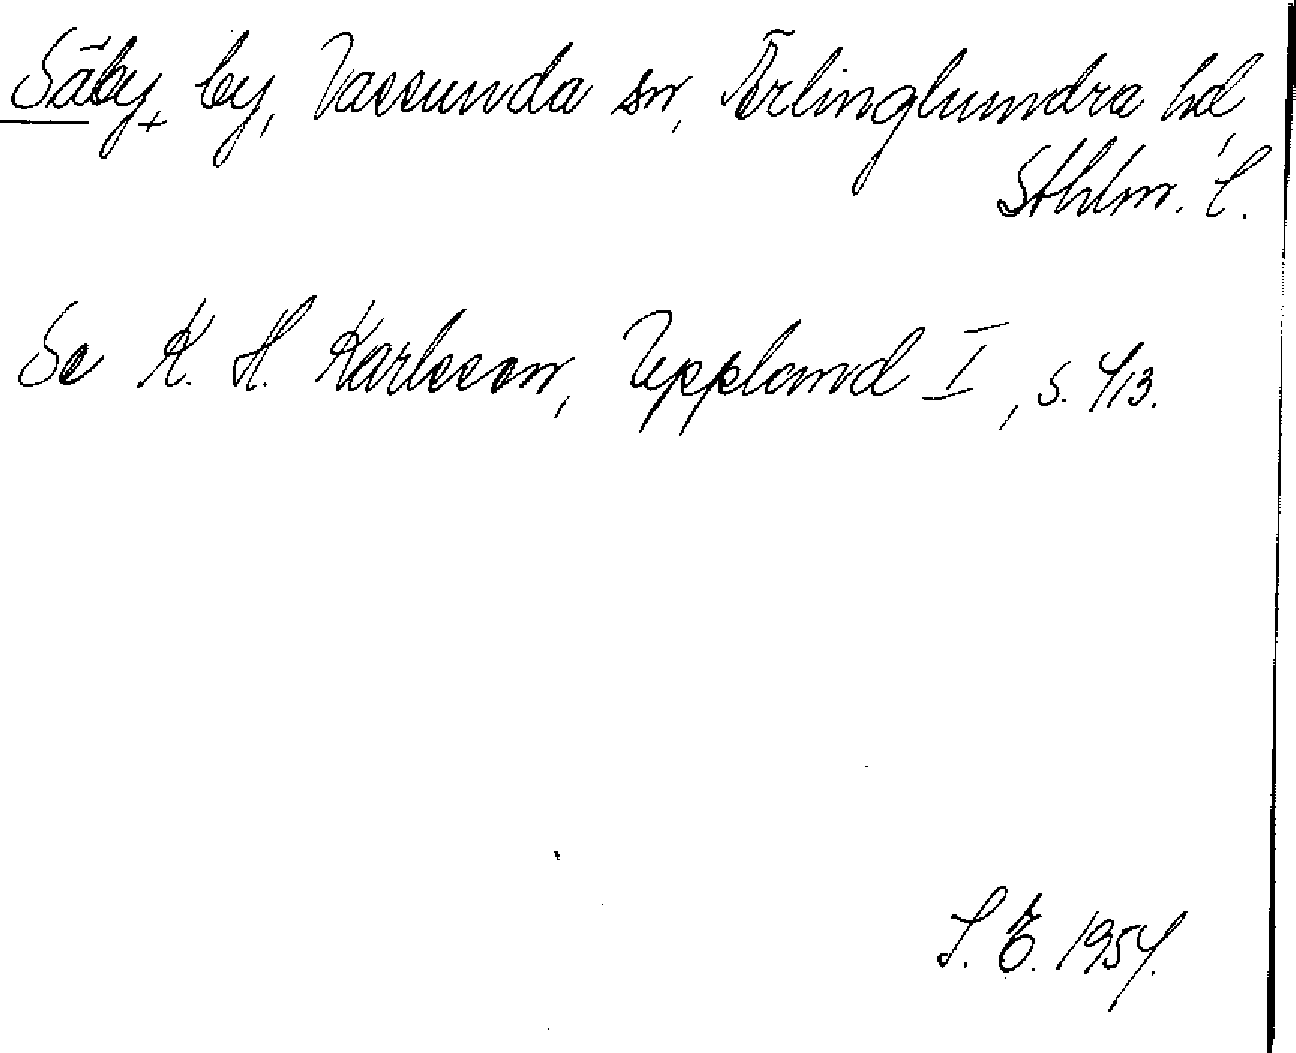 Säby, by, Vassunda sn, Ärlinghundra hd,
Sthlm. l.
Se K. H. Karlsson, Uppland I, s. 413.
S. E. 1954.